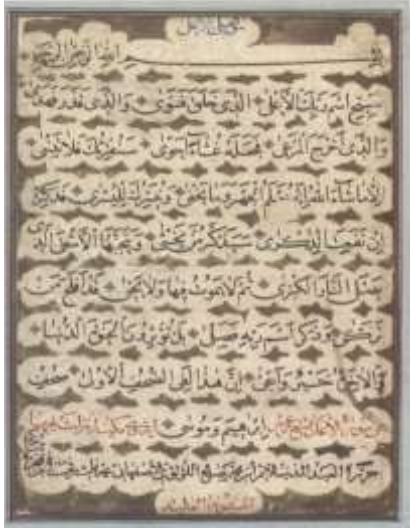 بسم الله الرحمن الرحيم
سبح اسم ربك الأعلى الذي خلق فسوى والذي قدر فهدى
والذي أخرج المرعى فجعله غثاء أحوى سنقرئك فلا تنسى
إلا ما شاء الله إنه يعلم الجهر وما يخفى ونيسرك لليسرى فذكر
إن نفعت الذكرى سيذكر من يخشى ويتجنبها الأشقى الذي
يصلى النار الكبرى ثم لا يموت فيها ولا يحيى قد أفلح من
تزكى وذكر اسم ربه فصلى بل تؤثرون الحيوة الدنيا
والآخرة خير وأبقى إن هذا لفي الصحف الأولى صحف
إبراهيم وموسى
حرره العبد المذنب